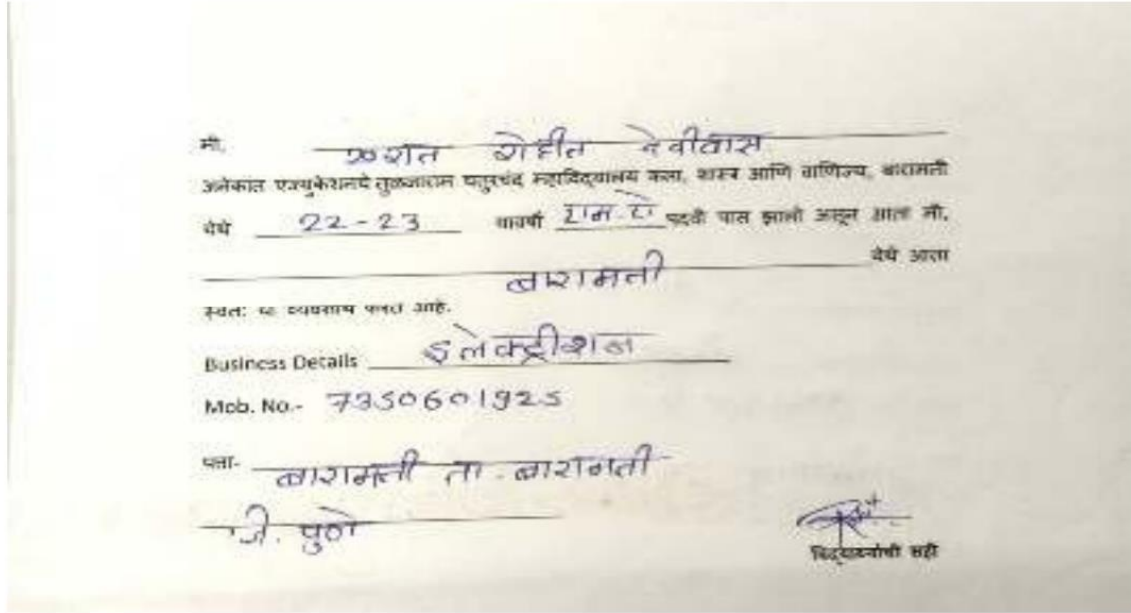 मी, रोहीत देवीदास
अनेकांत एज्युकेशनचे तुळजाराम चतुरचंद महाविद्यालय कला, शास्त्र आणि वाणिज्य, बारामती
येथे 22-23 यावर्षी एम.ए पदवी पास झालो असून आता मी,
बारामती येथे आता
स्वतः चा व्यवसाय करत आहे.
Business Details इलेक्ट्रीशन
Mob. No.- 7350601925
पत्ता- बारामती ता. बारामती
जि. पुणे
विद्यार्थ्याची सही